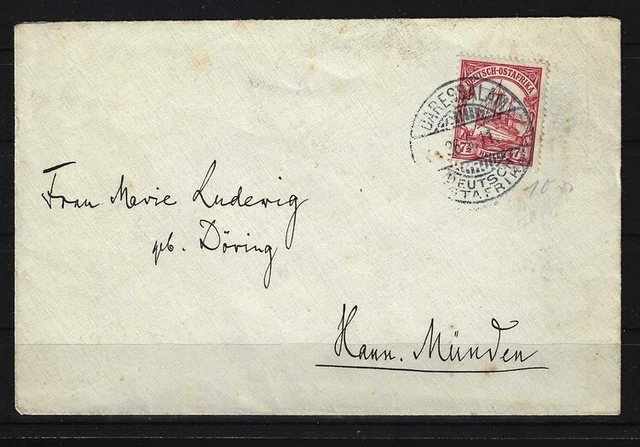 DEUTSCH-OSTAFRIKA
7½ 7½
DARESSALAM
DEUTSCH
OSTAFRIKA
Frau Marie Ludewig
geb. Döring
Hann. Münden